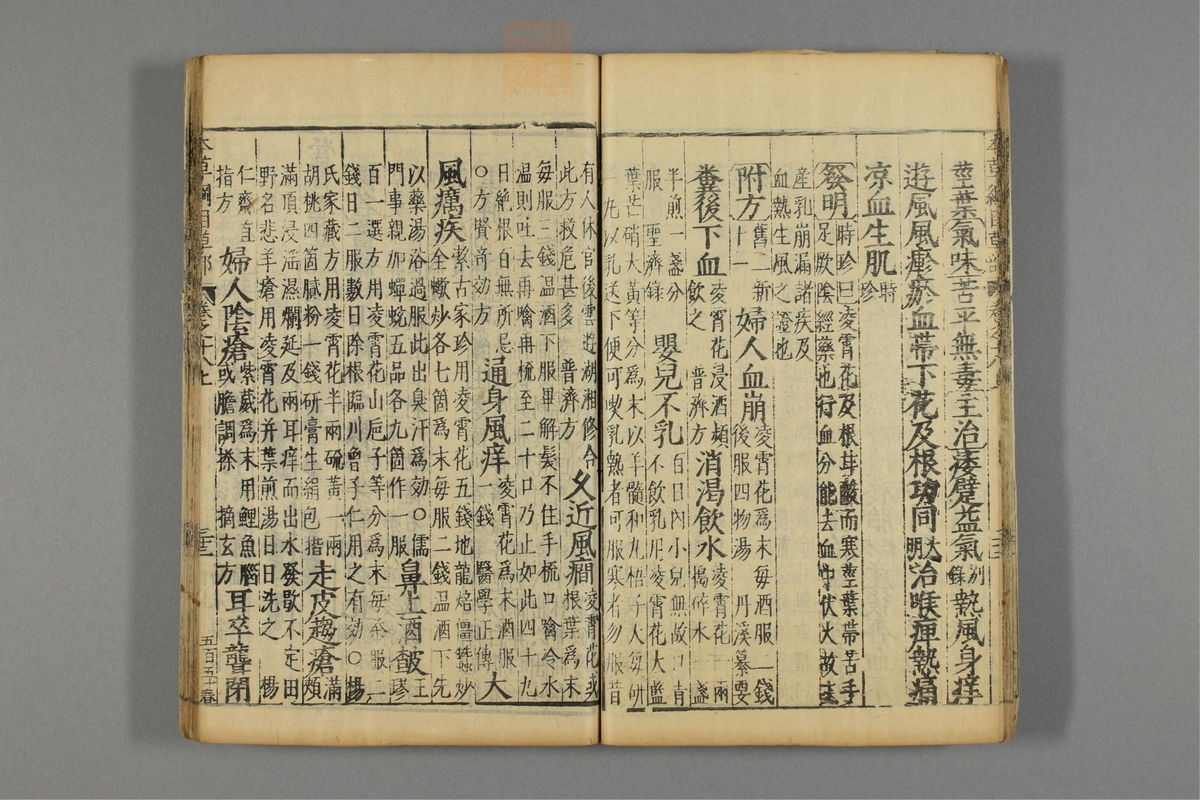 莖葉氣味苦平無毒主治痿躄益氣別錄熱風身痒
遊風風㾦瘀血帶下花及根功同大明治喉痺熱痛
凉血生肌時珍
發明時珍曰凌霄花及根甘酸而寒莖葉帶苦手
足厥陰經藥也行血分能去血中伏火故主
產乳崩漏諸疾及
血熱生風之證也
附方舊二新十一 婦人血崩凌霄花爲末每酒服二錢後服四物湯 丹溪纂要
糞後下血凌霄花浸酒頻飲之 普濟方 消渴飲水凌霄花一兩搗碎水一盞
半煎一盞分服 聖濟錄 嬰兒不乳百日內小兒無故口青不飲乳用凌霄花大藍
葉芒硝大黃等分爲末以羊髓和丸梧子大每研
一丸以乳送下便可喫乳熱者可服寒者勿服昔
有人休官後雲遊湖湘修合此方救危甚多 普濟方 久近風癇凌霄花或根葉爲末
每服三錢溫酒下服畢解髮不住手梳口噙冷水
溫則吐去再噙再梳至二十口乃止如此四十九
日絕根百無所忌○方賢奇効方 通身風痒凌霄花爲末酒服一錢 醫學正傳 大
風癘疾潔古家珍用凌霄花五錢地龍焙僵蠶炒全蠍炒各七箇爲末每服二錢溫酒下先
以藥湯浴過服此出臭汗爲効○儒門事親加蟬蛻五品各九箇作一服 鼻上酒皶王璆
百一選方用凌霄花山巵子等分爲末每茶服二
錢日二服數日除根臨川曾子仁用之有効○楊
氏家藏方用凌霄花半兩硫黃一兩胡桃四箇膩粉一錢研膏生絹包揩 走皮趨瘡滿頰
滿頂浸淫濕爛延及兩耳痒而出水發歇不定田
野名悲羊瘡用凌霄花并葉煎湯日日洗之 楊
仁齋直指方 婦人陰瘡紫葳爲末用鯉魚腦或膽調搽 摘玄方 耳卒聾閉
五百五十春
本草綱目草部 卷之十八上 三三